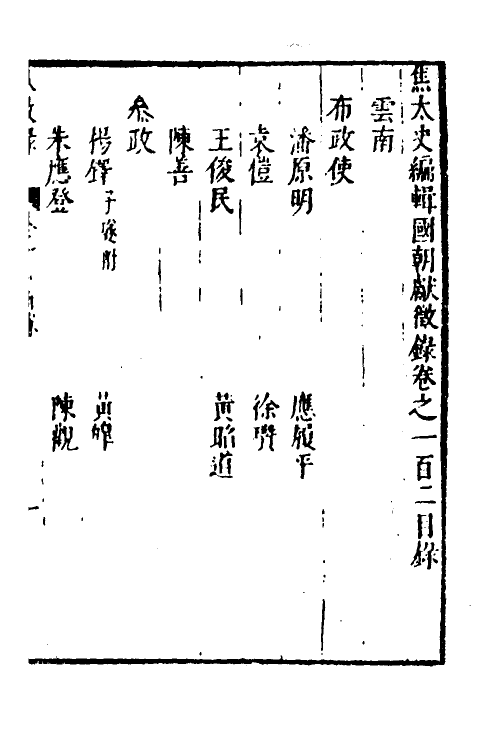 焦太史編輯國朝獻徵錄卷之一百二目錄
雲南
布政使
潘原明 應履平
袁愷 徐
王俊民 黃昭道
陳善
叅政
楊鐸 子 附 黃
朱應登 陳觀